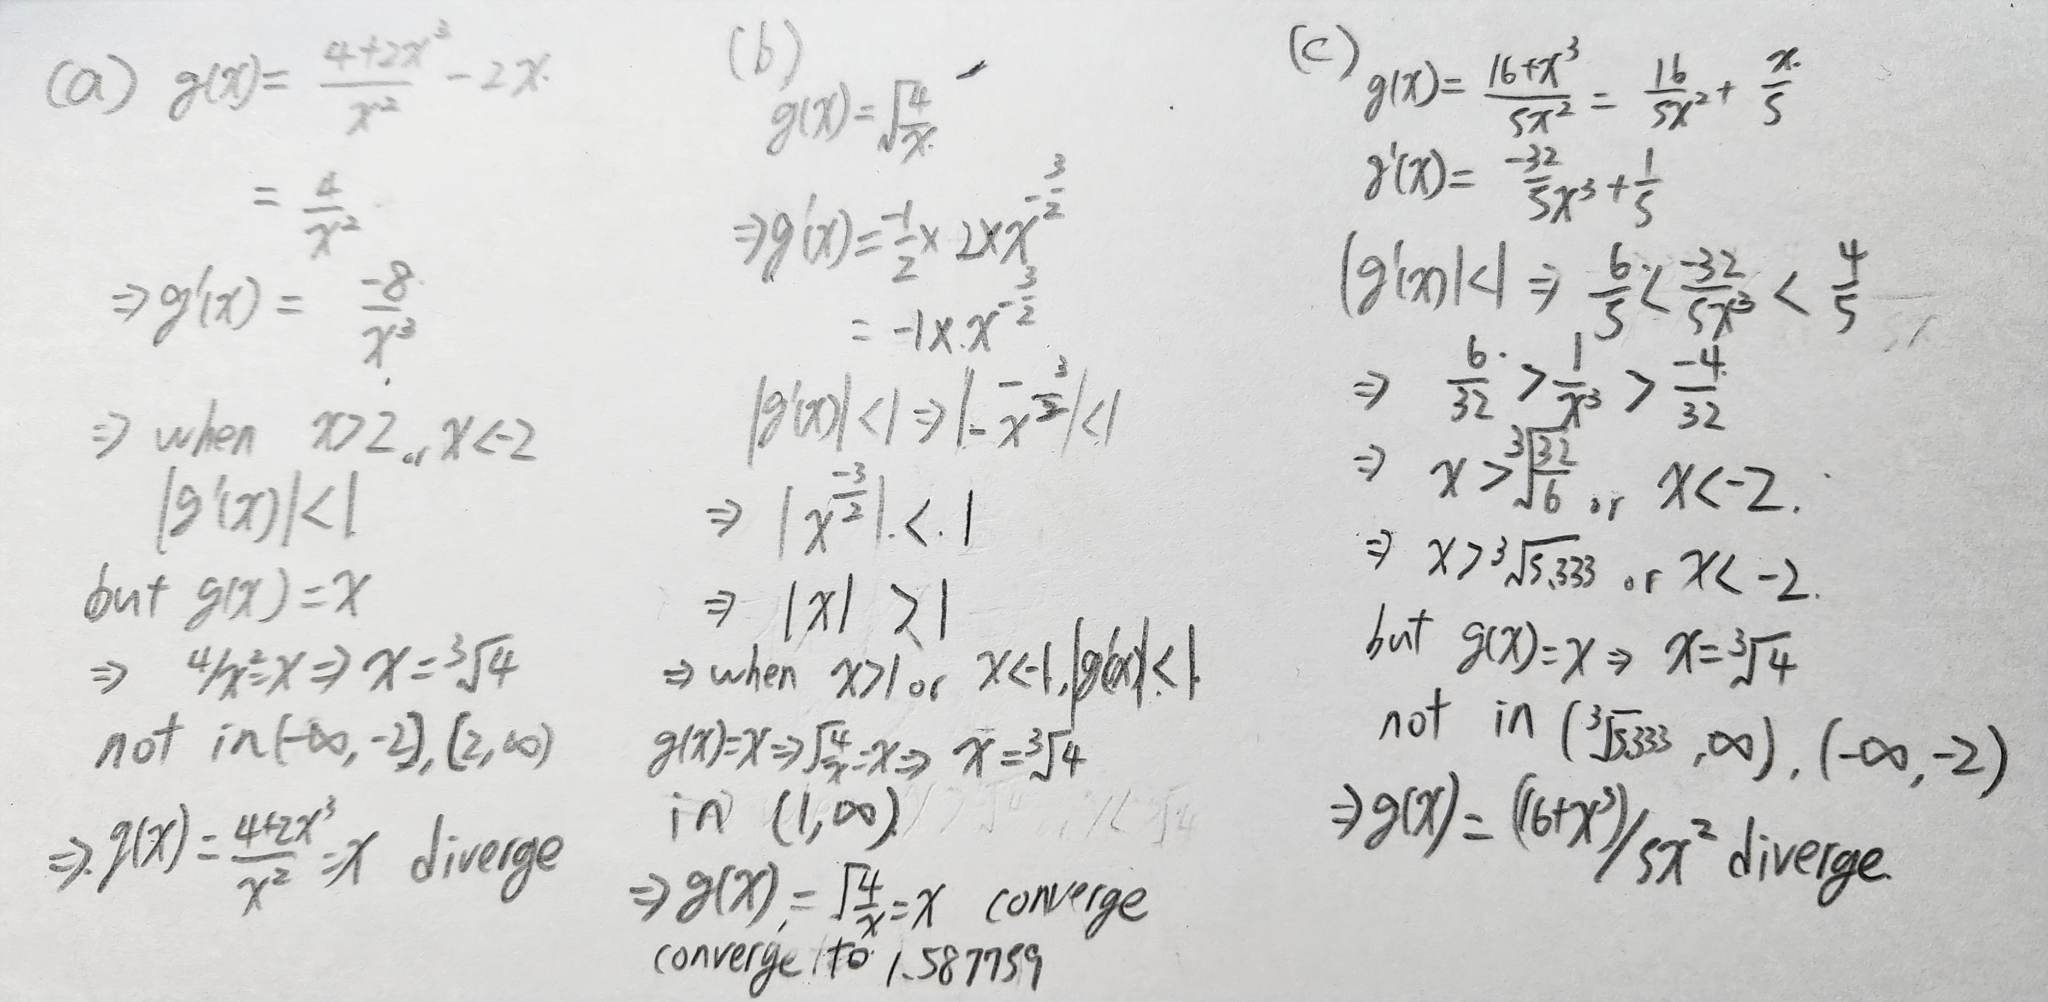 (a) g(x) = (4+2x³)/x² - 2x.
= 4/x²
⇒ g'(x) = -8/x³
⇒ when x>2 or x<-2
|g'(x)|<1
but g(x)=x
⇒ 4/x²=x ⇒ x=³√4
not in (-∞,-2], [2,∞)
⇒. g(x) = (4+2x³)/x² = x diverge
(b)
g(x)=√(4/x).
⇒ g'(x) = -1/2 × 2 × x^(-3/2)
= -1 × x^(-3/2)
|g'(x)|<1 ⇒ |-x^(-3/2)|<1
⇒ |x^(-3/2)| < 1
⇒ |x| >1
⇒ when x>1 or x<-1, |g'(x)|<1.
g(x)=x ⇒ √(4/x)=x ⇒ x=³√4
in (1,∞)
⇒ g(x) = √(4/x) = x converge
converge to 1.587759
(c) g(x) = (16+x³)/5x² = 16/5x² + x/5
g'(x) = -32/5x³ + 1/5
|g'(x)|<1 ⇒ 6/5 < -32/5x³ < 4/5
⇒ 6/32 > 1/x³ > -4/32
⇒ x > ³√(32/6) or x<-2.
⇒ x > ³√5.333 or x<-2.
but g(x)=x ⇒ x=³√4
not in (³√5.333, ∞), (-∞,-2)
⇒ g(x) = (16+x³)/5x² diverge.